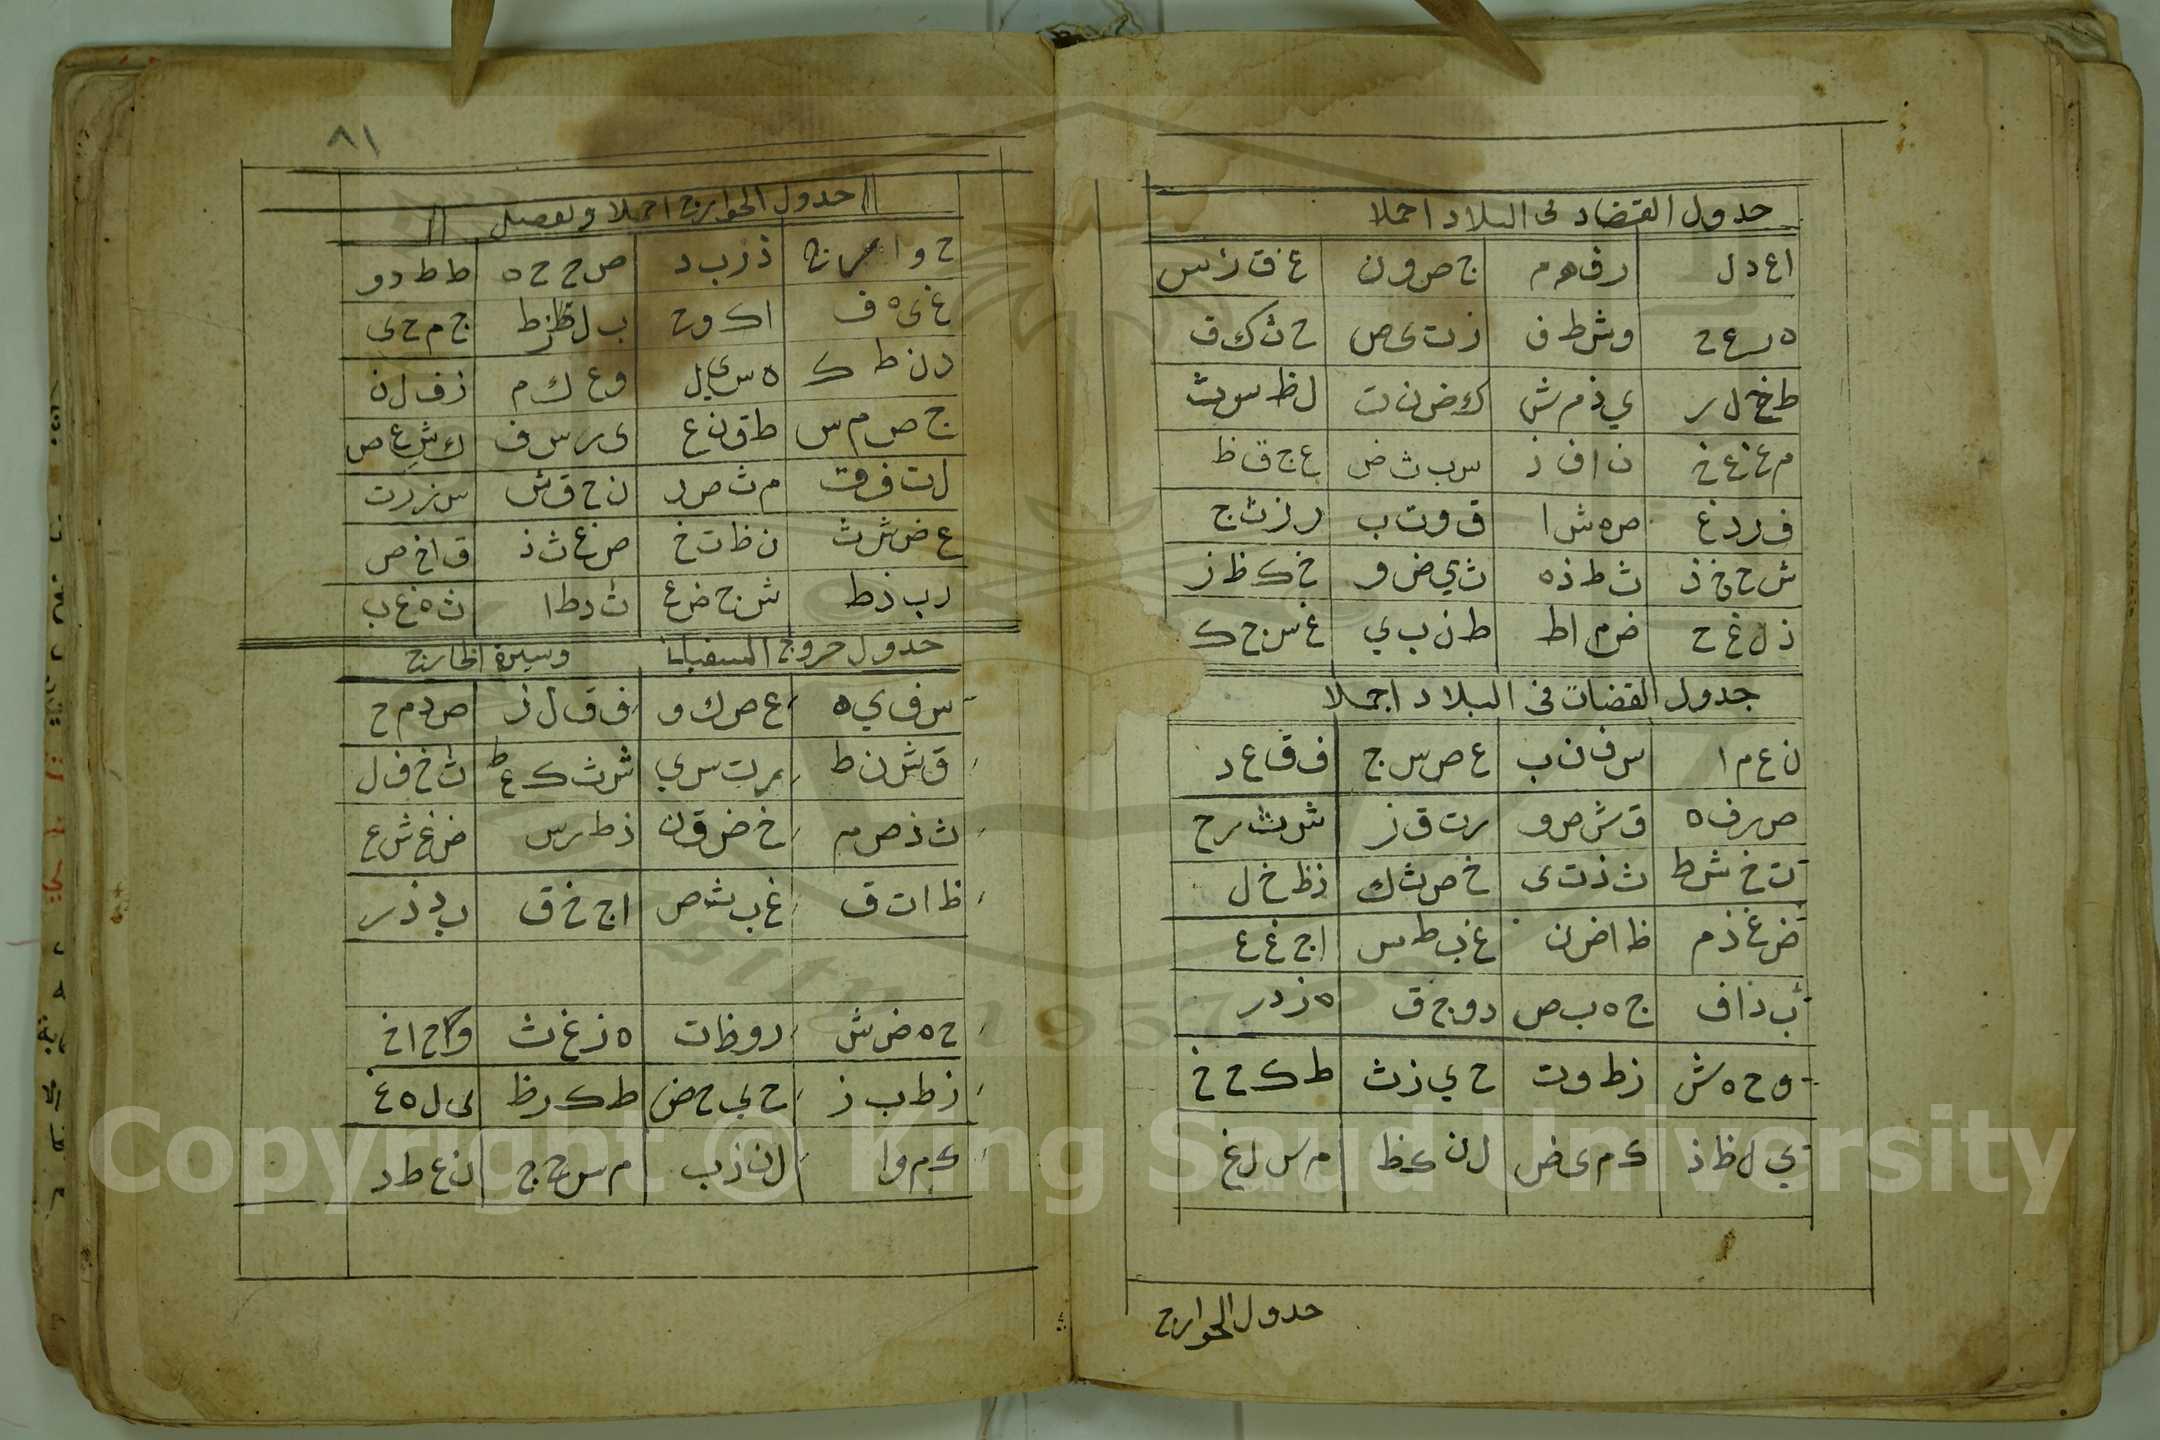 جدول القضاد فى البلاد اجملا
ا ع د ل	ر ف ه م	ج ص و ن	غ ق ز س
ه ر ع ح	و ش ط ف	ز ت ى ص	ح ث ك ق
ط خ ل ر	ي ذ م ش	ك ض ن ت	ل ظ س ث
م غ ع خ	ن ا ف ذ	س ب ث ض	ع ج ق ظ
ف ر د غ	ص ه ش ا	ق و ت ب	ر ز ث ج
ش ح خ ذ	ث ط ذ ه	ث ي ض و	خ ك ظ ز
ذ ل غ ح	ض م ا ط	ظ ن ب ي	غ س ج ك
جدول القضات فى البلاد اجملا
ن ع م ا	س ف ن ب	ع ص س ج	ف ق ع د
ص ر ف ه	ق ش ص و	ر ت ق ز	ش ث ر ح
ت خ ش ط	ث ذ ت ى	خ ض ث ك	ذ ظ خ ل
ض غ ذ م	ظ ا ض ن	غ ب ظ س	ا ج غ ع
ب د ا ف	ج ه ب ص	د و ج ق	ه ز د ر
و ح ه ش	ز ط و ت	ح ي ز ث	ط ك ح خ
ي ل ظ ذ	ك م ى ض	ل ن ك ظ	م س ل غ
جدول الخوارج
٨١
جدول الخوارج اجملا وتفصيل
خ و ا ر ج	ذ ز ب د	ض ح ج ه	ظ ط د و
غ ى ه ف	ا ك و ح	ب ل ز ط	ج م ح ى
د ن ط ك	ه س ي ل	و ع ك م	ز ف ل ن
ح ص م س	ط ق ن ع	ى ر س ف	ك ش ع ص
ل ت ف ق	م ث ص ر	ن خ ق ش	س ذ ر ت
ع ض ش ث	ف ظ ت خ	ص غ ث ذ	ق ا خ ض
ر ب ذ ظ	ش ج ض غ	ت د ظ ا	ث ه غ ب
جدول خروج السفيانى وسيرة الخارج
س ف ي ه	ع ص ك و	ف ق ل ز	ص ر م ح
ق ش ن ط	ر ت س ي	ش ث ك ع	ت خ ف ل
ث ذ ص م	خ ض ق ن	ذ ظ ر س	ض غ ش ع
ظ ا ت ق	غ ب ث ص	ا ج خ ق	ب د ذ ر
ج ه ض ش	د و ظ ت	ه ز غ ث	و ح ا خ
ز ط ب ذ	ح ي ج ض	ط ك د ظ	ى ل ه غ
ك م و ا	ل ن ز ب	م س ح ج	ن ع ط د
Copyright © King Saud University
1957